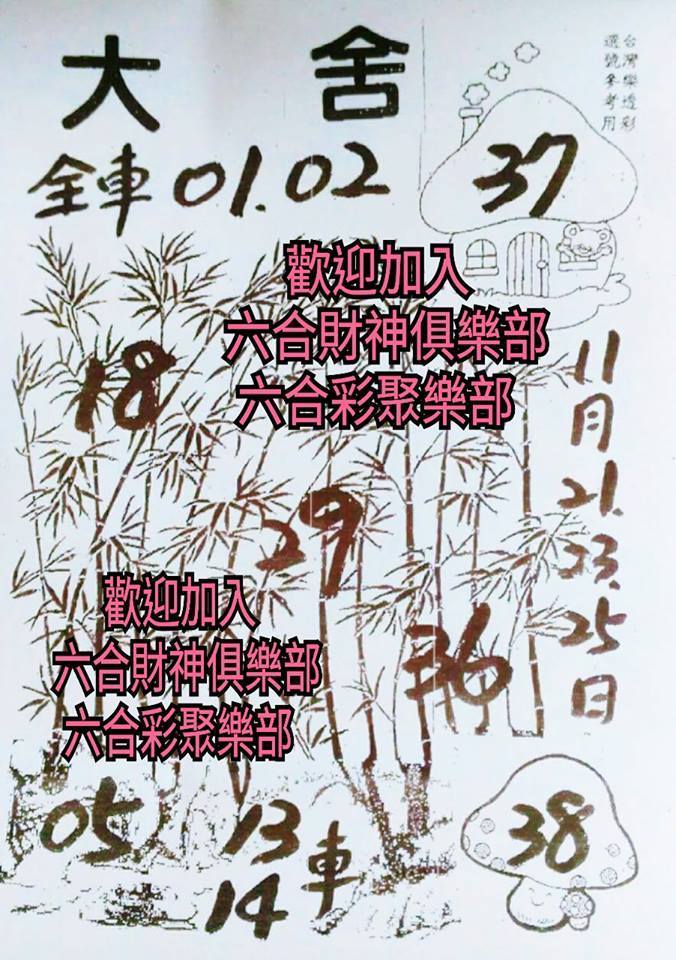 大舍
台灣樂透彩
選號參考用
全車 01.02
37
歡迎加入
六合財神俱樂部
六合彩聚樂部
18
11月21.23.25日
29
36
歡迎加入
六合財神俱樂部
六合彩聚樂部
05
13
14
車
38